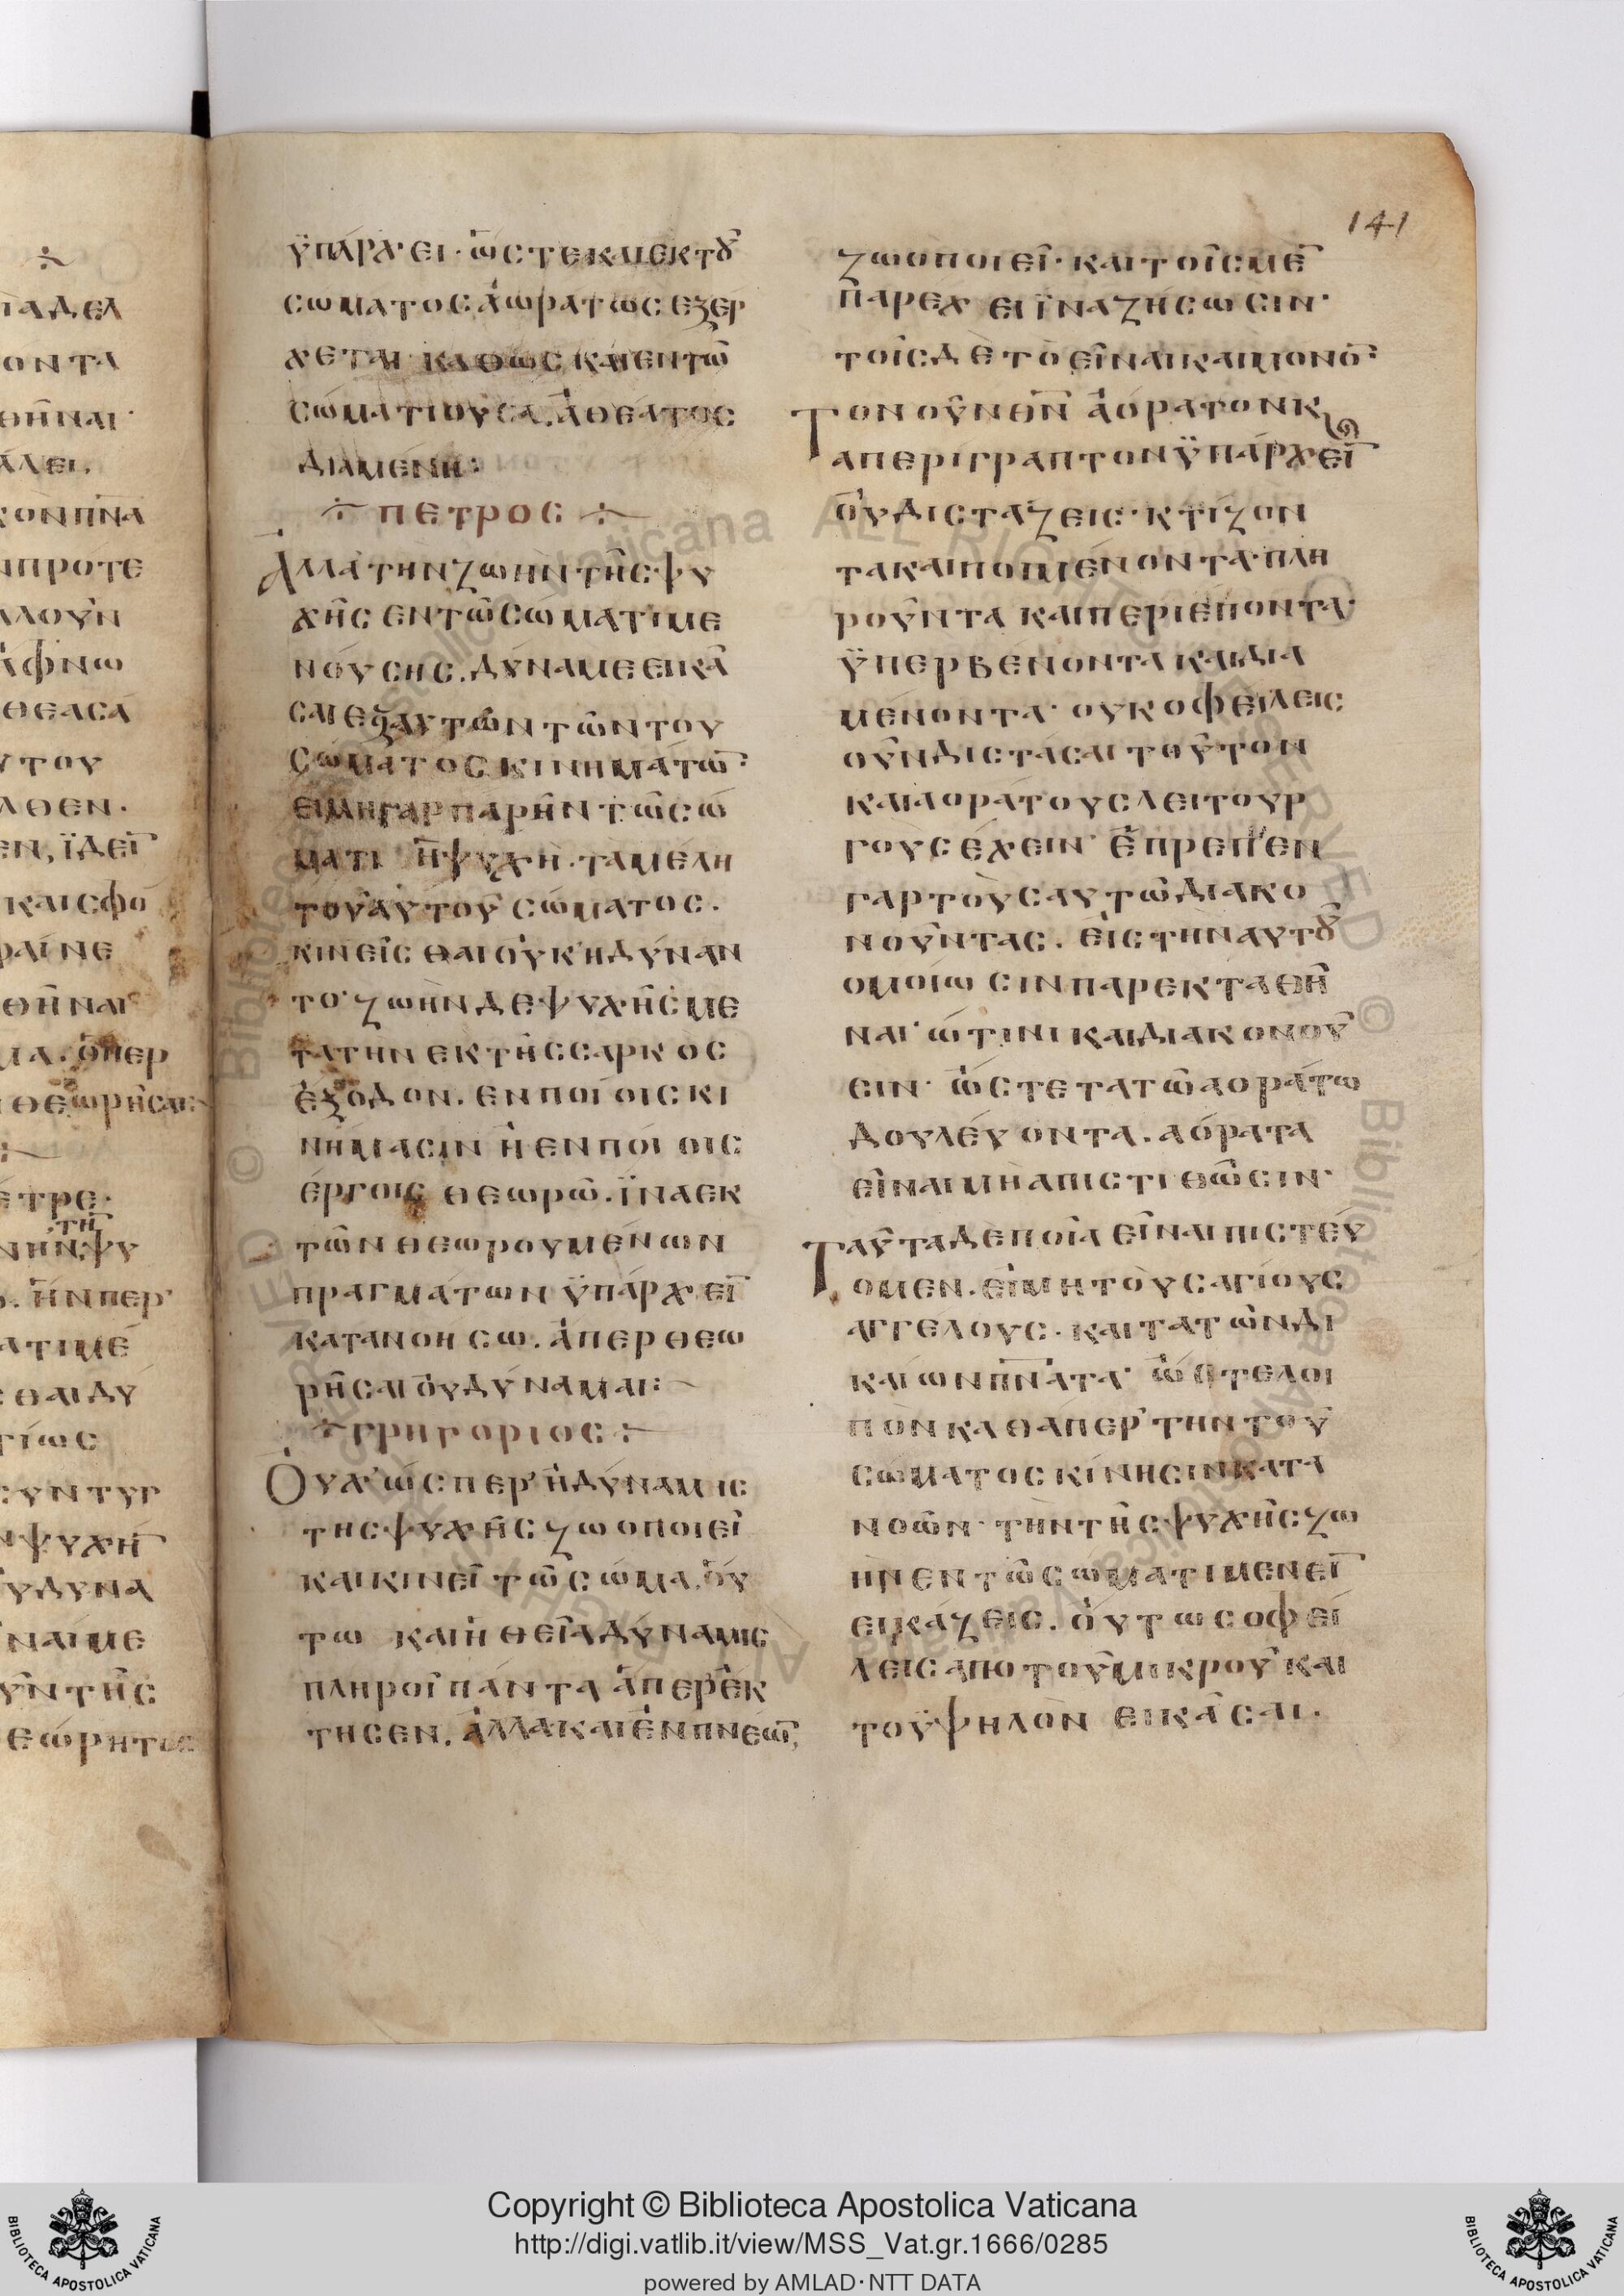 141
ϋπάρχει· ὥστε καὶ ἐκ τȣ͂
σώματος ἀωράτως εξέρ
χεται καθως καὶ εν τῶ
σώματι οὖσα. ἀθέατος
διαμένη:
÷ ΠΕΤΡΟC ÷
Ἀλλὰ τὴν ζωὴν τῆς ψυ
χῆς εν τῶ σώματι με
νούσης. δύναμε εικά
σαι εξ αυτῶν τῶν του
σώματος κινημάτω̅:
ει μη γαρ παρῆν τῶ σώ
ματι ἡ ψυχὴ. τα μέλη
τοῦ αὐτοῦ σώματος.
κινεῖσθαι οὐκ ἠδύναν
το· ζωὴν δε ψυχῆς με
τα τὴν εκ τῆς σαρκὸς
ἐξοδον. εν ποίοις κι
νήμασιν ἢ εν ποίοις
έργοις θεωρῶ. ϊνα εκ
τῶν θεωρουμένων
πραγμάτων ϋπάρχει̅
κατανοήσω. ἅπερ θεω
ρῆσαι οὐ δύναμαι:
÷ ΓΡΗΓΟΡΙΟC ÷
Οὐχ' ὥσπερ ἡ δύναμις
της ψυχῆς ζωοποιεῖ
και κινεῖ τῶ σώμα. ού
τω και ἡ θεῖα δύναμις
πληροῖ πάντα ἅπερ ἔκ
τησεν. ἀλλα και ἐνπνέω̅,
ζωοποιεῖ· και τοῖς με̅
παρέχει ϊνα ζήσωσιν·
τοῖς δὲ τὸ εἶναι και μονο̅:
Τον οῦν θν̅ ἀόρατον κ̣
απερίγραπτον ϋπάρχει̅
οὐ διστάζεις· κτίζον
τα και ποπιένοντα· πλη
ροῦντα και περιέποντα·
ϋπερβένοντα και δια
μένοντα· ουκ οφείλεις
οῦν διστάσαι τοῦτον
και αοράτους λειτουρ
γοὺς έχειν· ἔπρεπεν
γαρ τοὺς αυτῶ διακο
νοῦντας. εἰς τὴν αυτȣ͂
ομοίωσιν παρεκταθῆ
ναι· ώτινι και διακονοῦ
σιν· ὥστε τα τῶ αοράτω
δουλέυοντα. αόρατα
εἶναι μὴ απιστιθῶσιν·
Ταῦτα δε ποῖα εἶναι πιστέυ
ομεν. εἰ μη τοὺς αγίους
αγγέλους. και τα τῶν δι
καίων πνα̅τα· ὥστε λοι
πὸν καθάπερ την τοῦ
σώματος κίνησιν κατα
νοῶν· τὴν τῆς ψυχῆς ζω
ὴν εν τῶ σώματι μενει̅
εικάζεις. ὁύτως οφεί
λεις απο τοῦ μικροῦ και
το ϋψηλὸν εικάσαι.
Copyright © Biblioteca Apostolica Vaticana
http://digi.vatlib.it/view/MSS_Vat.gr.1666/0285
powered by AMLAD·NTT DATA
BIBLIOTECA APOSTOLICA VATICANA
BIBLIOTECA APOSTOLICA VATICANA